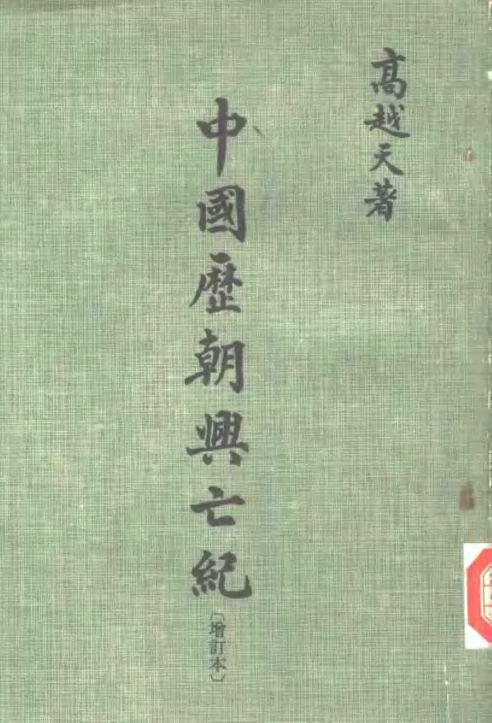 高越天著
中國歷朝興亡紀
〔增訂本〕